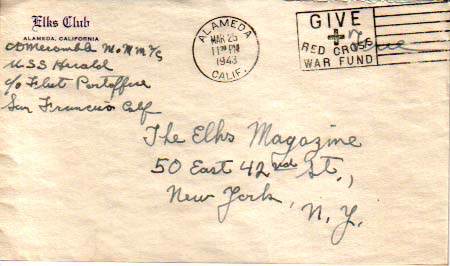 Elks Club
ALAMEDA, CALIFORNIA
USS Herald
c/o Fleet Postoffice
San Francisco Calf
ALAMEDA
MAR 25
PM
1943
CALIF.
GIVE
RED CROSS
WAR FUND
Free
The Elks Magazine
50 East 42nd St.,
New York,
N.Y.